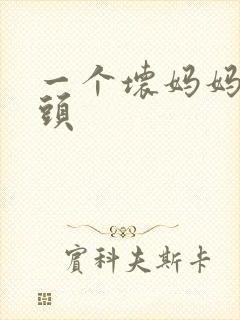 一个坏妈妈
頭
賓科夫斯卡